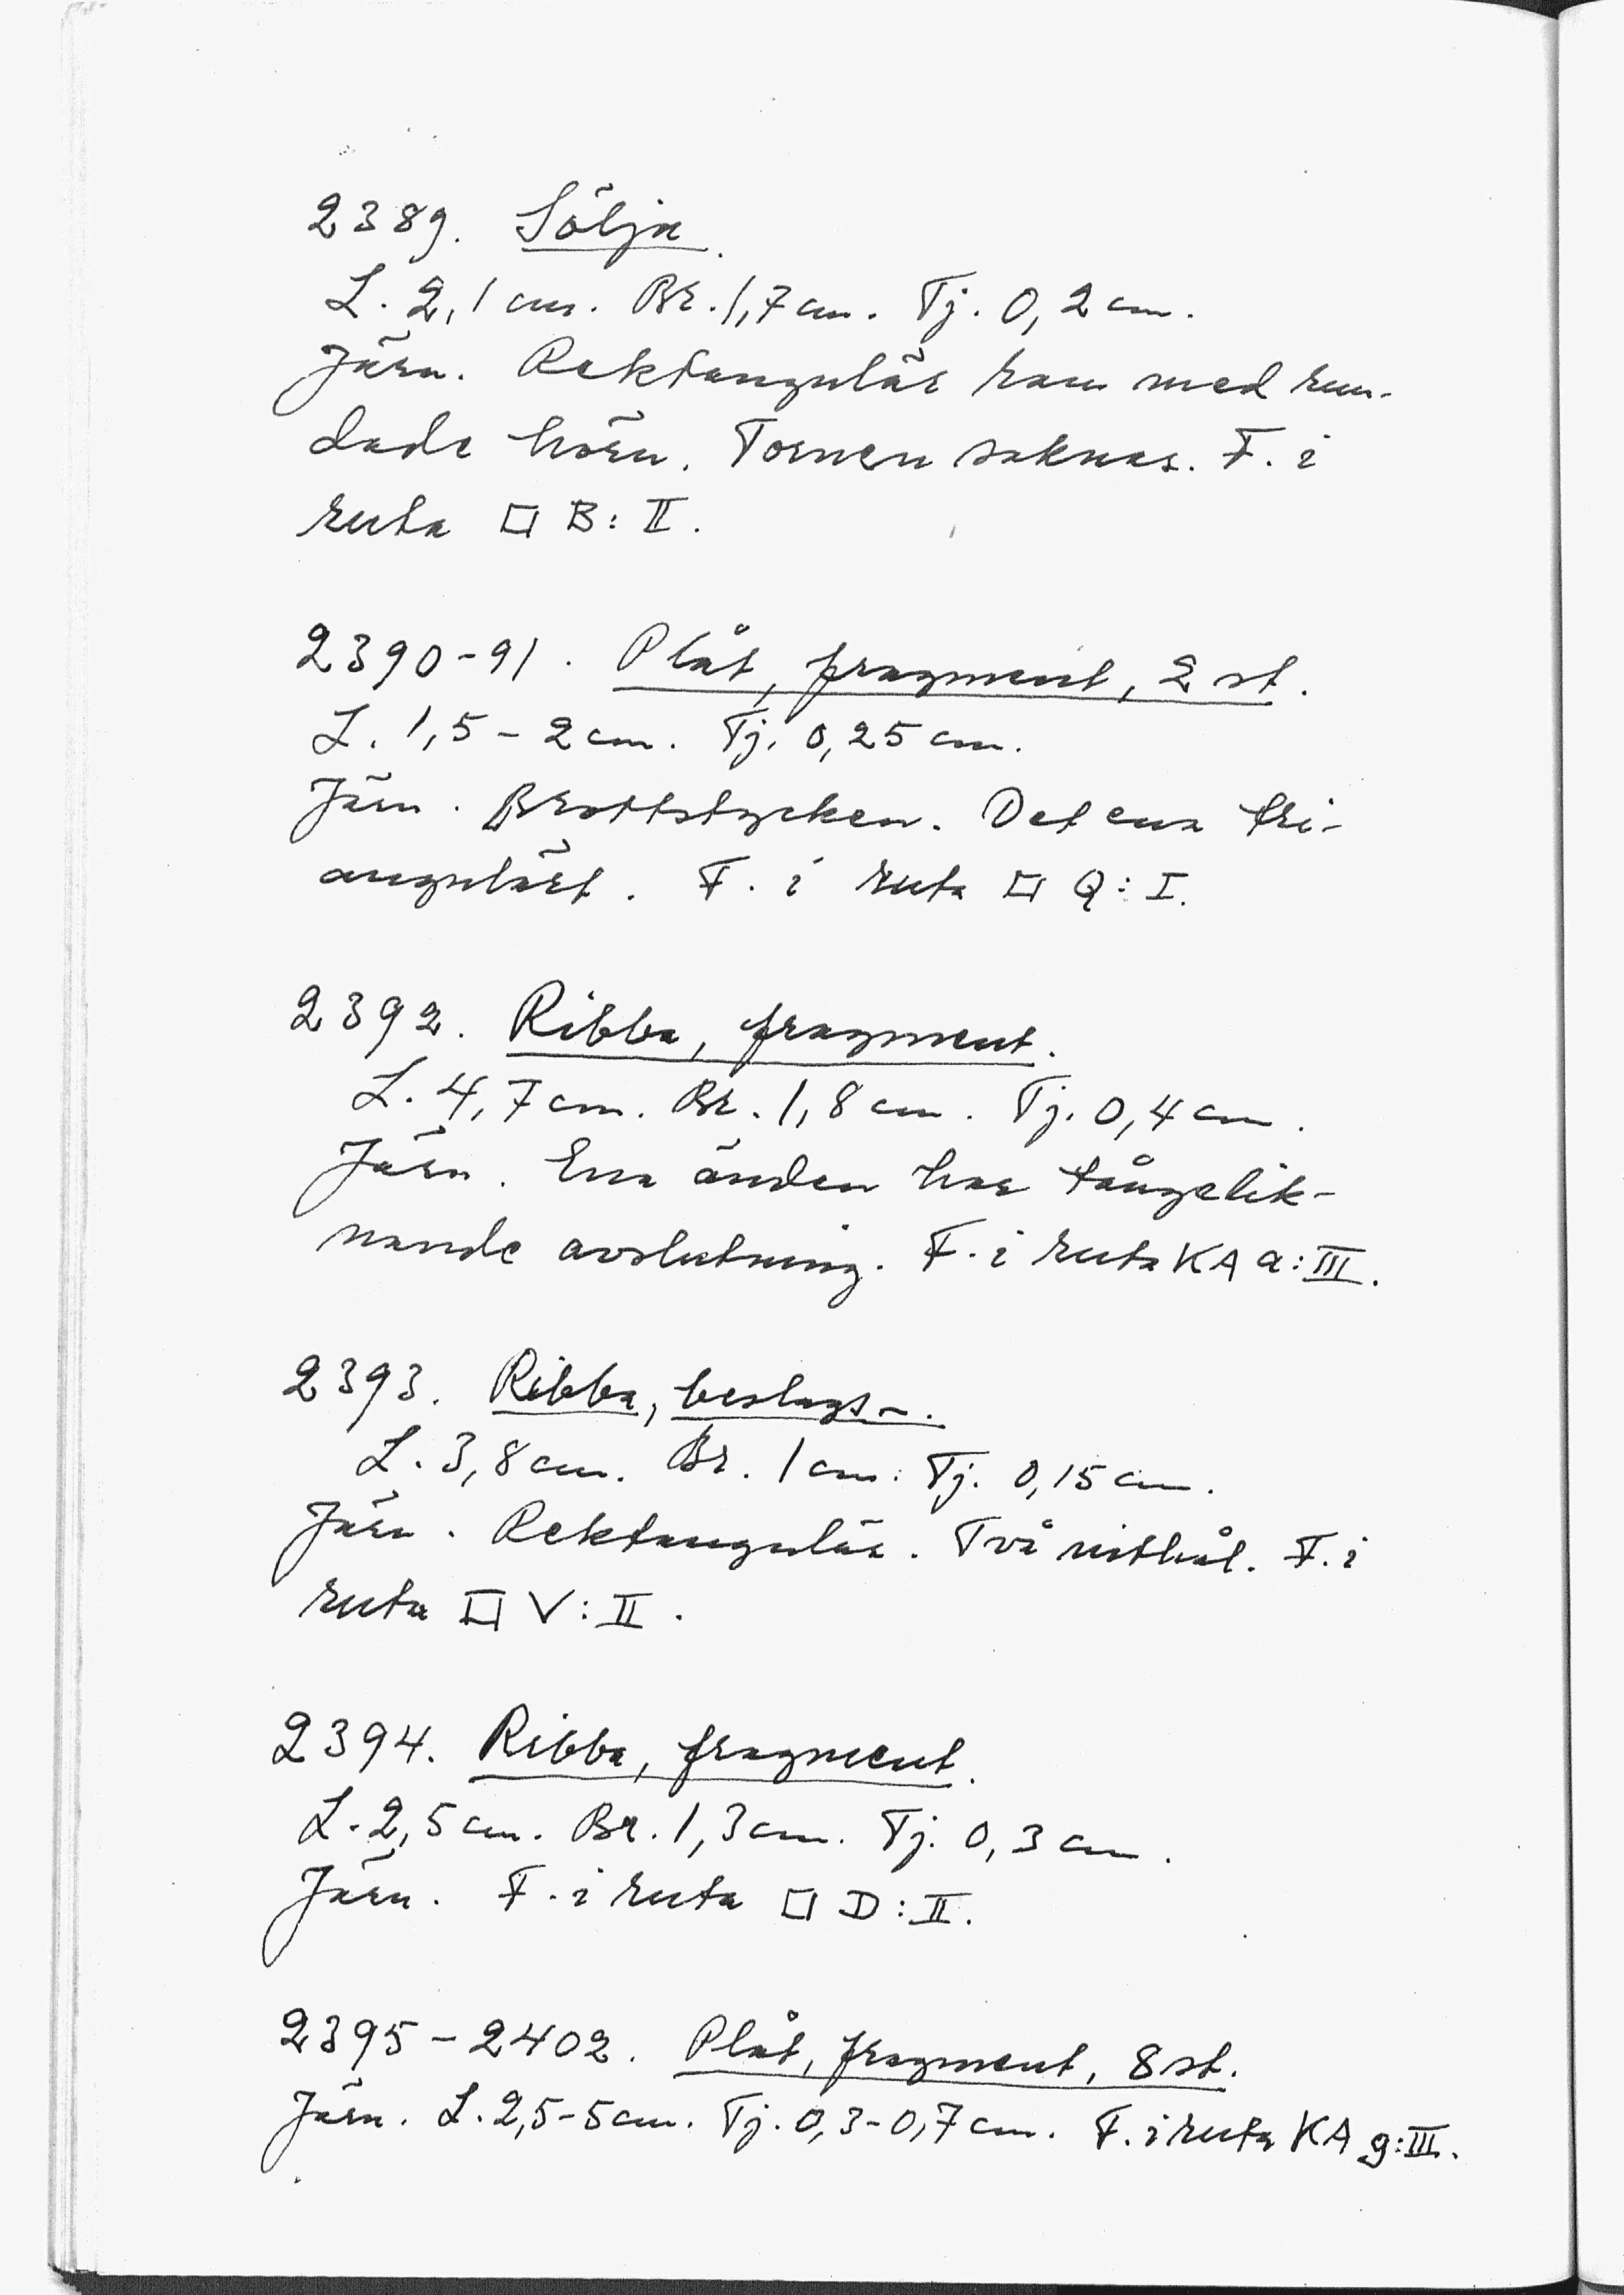 2389. Sölja.
L. 2,1 cm. Br. 1,7 cm. Tj. 0,2 cm.
Järn. Rektangulär ram med run-
dade hörn. Tornen saknas. F. i
ruta □ B: II.
2390-91. Plåt, fragment, 2 st.
L. 1,5 - 2 cm. Tj. 0,25 cm.
Järn. Brottstycken. Det ena tri-
angulärt. F. i ruta □ Q: I.
2392. Ribba, fragment.
L. 4,7 cm. Br. 1,8 cm. Tj. 0,4 cm.
Järn. Ena änden har tångelik-
nande avslutning. F. i ruta KA a: III.
2393. Ribba, beslags-.
L. 3,8 cm. Br. 1 cm. Tj. 0,15 cm.
Järn. Rektangulär. Två nithål. F. i
ruta □ V: II.
2394. Ribba, fragment.
L. 2,5 cm. Br. 1,3 cm. Tj. 0,3 cm.
Järn. F. i ruta □ D: II.
2395-2402. Plåt, fragment, 8 st.
Järn. L. 2,5-5 cm. Tj. 0,3-0,7 cm. F. i ruta KA g: III.